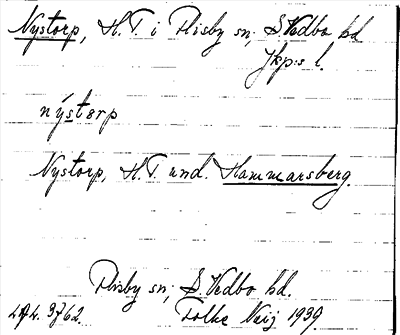 Nystorp, H.T. i Flisby sn, S. Vedbo hd
Jkp:s l.
nýstərp
Nystorp, H.T. und. Hammarsberg.
Flisby sn; S. Vedbo hd.
Folke Neij 1939.